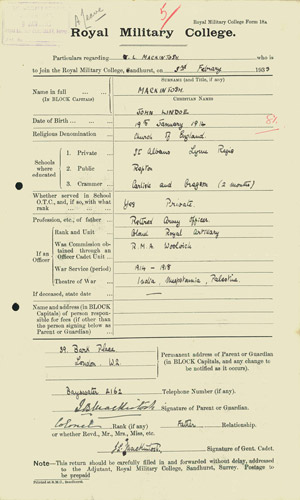 5
A Leave
Royal Military College Form 18A.
Royal Military College.
Particulars regarding L. MACKINTOSH who is
to join the Royal Military College, Sandhurst, on 3rd February 1933
SURNAME (and Title, if any)
Name in full
(In BLOCK Capitals)
MACKINTOSH
CHRISTIAN NAMES
JOHN LINDOE
Date of Birth 19th January 1914
Religious Denomination Church of England.
Schools where educated
1. Private St Albans Lyme Regis
2. Public Repton
3. Crammer Carlisle and Gregson (2 months)
Whether served in School O.T.C., and, if so, with what rank Yes Private.
Profession, etc., of father Retired Army Officer
If an Officer
Rank and Unit Colonel Royal Artillery
Was Commission obtained through an Officer Cadet Unit R.M.A Woolwich
War Service (period) 1914 - 1918
Theatre of War India Mesopotamia, Palestine.
If deceased, state date —
Name and address (in BLOCK Capitals) of person responsible for fees (if other than the person signing below as Parent or Guardian)
London. W2.
Permanent address of Parent or Guardian (in BLOCK Capitals, and any change to be notified as it occurs).
Bayswater 2162 Telephone Number (if any).
Signature of Parent or Guardian.
Colonel Rank (if any) Father Relationship.
or whether Revd., Mr., Mrs., Miss, etc.
J.L. Mackintosh. Signature of Gent. Cadet.
Note—This return should be carefully filled in and forwarded without delay, addressed to the Adjutant, Royal Military College, Sandhurst, Surrey. Postage to be prepaid
Printed at R.M.C., Sandhurst.